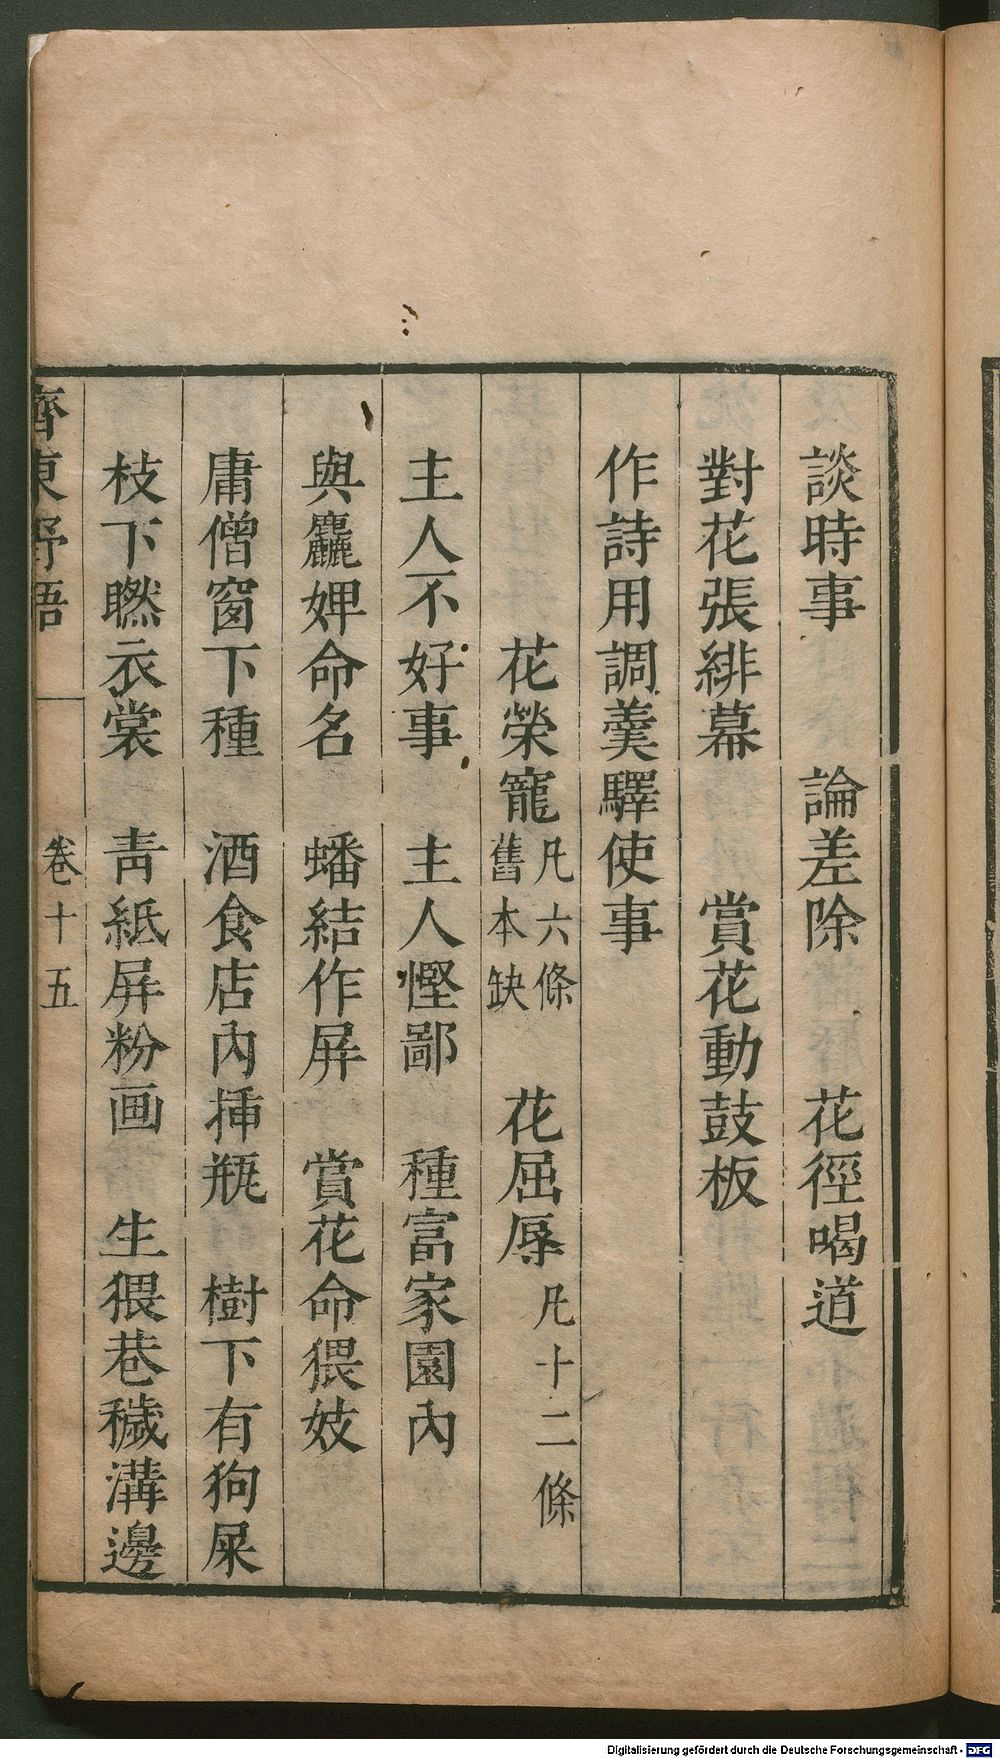 談時事　論差除　花徑喝道
對花張緋幕　賞花動鼓板
作詩用調羹驛使事
花榮寵凡六條舊本缺　花屈辱凡十二條
主人不好事　主人慳鄙　種富家園內
與麤婢命名　蟠結作屏　賞花命猥妓
庸僧窗下種　酒食店內揷瓶　樹下有狗屎
枝下瞭衣裳　青紙屏粉画　生猥巷穢溝邊
齊東野語　卷十五
Digitalisierung gefördert durch die Deutsche Forschungsgemeinschaft - DFG